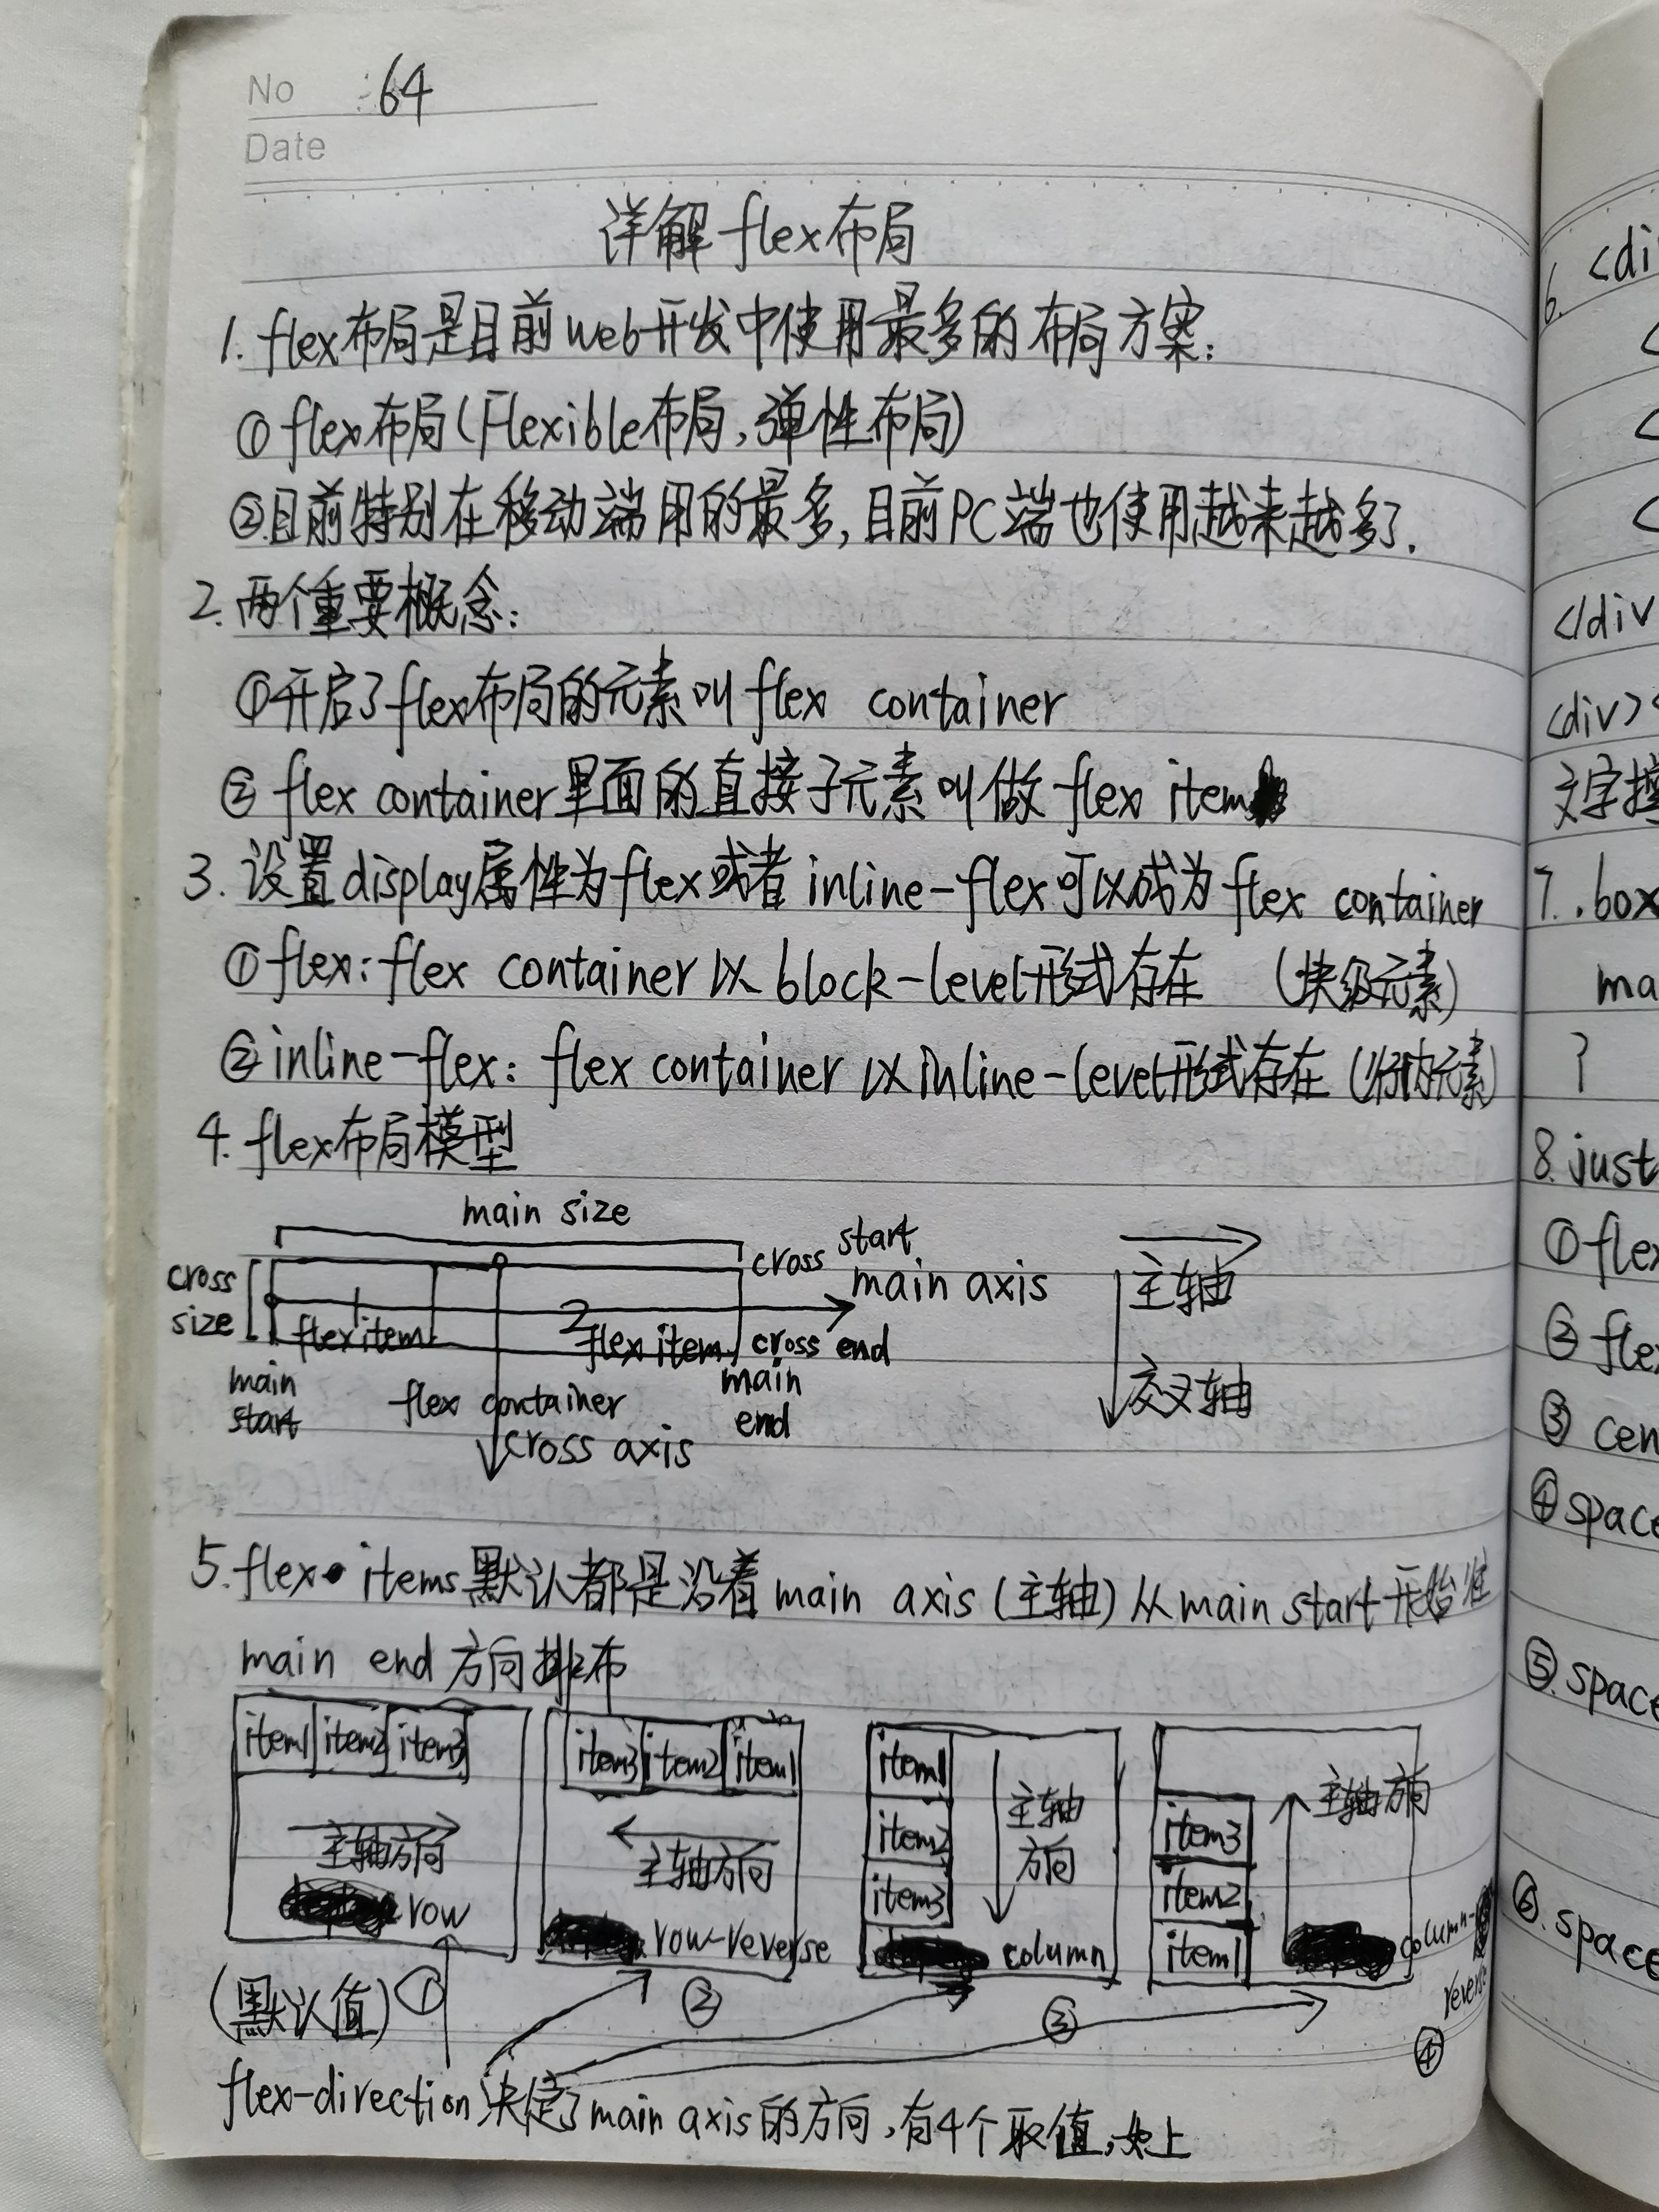 No :64
Date
详解flex布局
1. flex布局是目前web开发中使用最多的布局方案:
①flex布局(Flexible布局,弹性布局)
②目前特别在移动端用的最多,目前PC端也使用越来越多了.
2.两个重要概念:
①开启了flex布局的元素叫flex container
② flex container里面的直接子元素叫做flex item
3.设置display属性为flex或者inline-flex可以成为flex container
①flex:flex container以block-level形式存在 (块级元素)
②inline-flex: flex container以inline-level形式存在(行内元素)
4.flex布局模型
main size
cross start
cross size
main axis
1
flex item
2
flex item
cross end
main start
flex container
main end
cross axis
主轴
交叉轴
5.flex items默认都是沿着main axis(主轴)从main start开始往
main end方向排布
item1 item2 item3
主轴方向
row
item3 item2 item1
主轴方向
row-reverse
item1
item2
item3
主轴
方向
column
item3
item2
item1
主轴方向
column-
reverse
(默认值) ① ② ③ ④
flex-direction决定了main axis的方向,有4个取值,如上
6. <di
</div
<div>
文字
7. .box
ma
}
8.just
①flex
②flex
③cen
④space
⑤.space
⑥.space